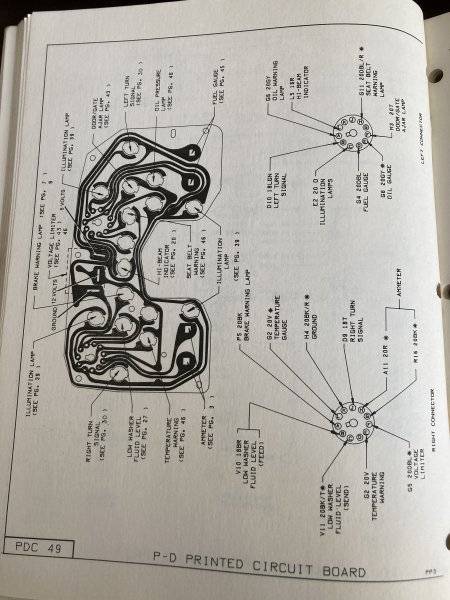 PDC 49
P-D PRINTED CIRCUIT BOARD
PP3
ILLUMINATION LAMP
(SEE PG. 39 )
GROUND
12 VOLTS
BRAKE WARNING LAMP (SEE PG. 7 )
VOLTAGE LIMITER
(SEE PG. 43 )
5 VOLTS
ILLUMINATION LAMP
(SEE PG. 39 )
DOOR/GATE
AJAR LAMP
(SEE PG. 43 )
LEFT TURN
SIGNAL
(SEE PG. 30 )
OIL PRESSURE
LAMP
(SEE PG. 46 )
FUEL GAUGE
(SEE PG. 45 )
RIGHT TURN
SIGNAL
(SEE PG. 30 )
LOW WASHER
FLUID LEVEL
(SEE PG. 27 )
TEMPERATURE
WARNING
(SEE PG. 46 )
AMMETER
(SEE PG. 3 )
HI-BEAM
INDICATOR
(SEE PG. 28 )
SEAT BELT
WARNING
(SEE PG. 46 )
ILLUMINATION
LAMP
(SEE PG. 39 )
V10 18BR
LOW WASHER
FLUID LEVEL
(FEED)
P5 20BK
BRAKE WARNING LAMP
G2 20V
TEMPERATURE
GAUGE
H4 20BK/R *
GROUND
D9 18T
RIGHT TURN
SIGNAL
AMMETER
A11 20R *
R16 20BK *
V11 20BK/T*
LOW WASHER
FLUID LEVEL
(SEND)
G2 20V
TEMPERATURE
WARNING
G5 20DBL*
VOLTAGE
LIMITER
RIGHT CONNECTOR
G6 20GY
OIL WARNING
LAMP
L5 18R
HI-BEAM
INDICATOR
G11 20DBL/R *
SEAT BELT
WARNING
LAMP
D10 18LGN
LEFT TURN
SIGNAL
E2 20 O
ILLUMINATION
LAMPS
G4 20DBL
FUEL GAUGE
G6 20GY*
OIL GAUGE
20T
DOOR/GATE
AJAR LAMP
LEFT CONNECTOR